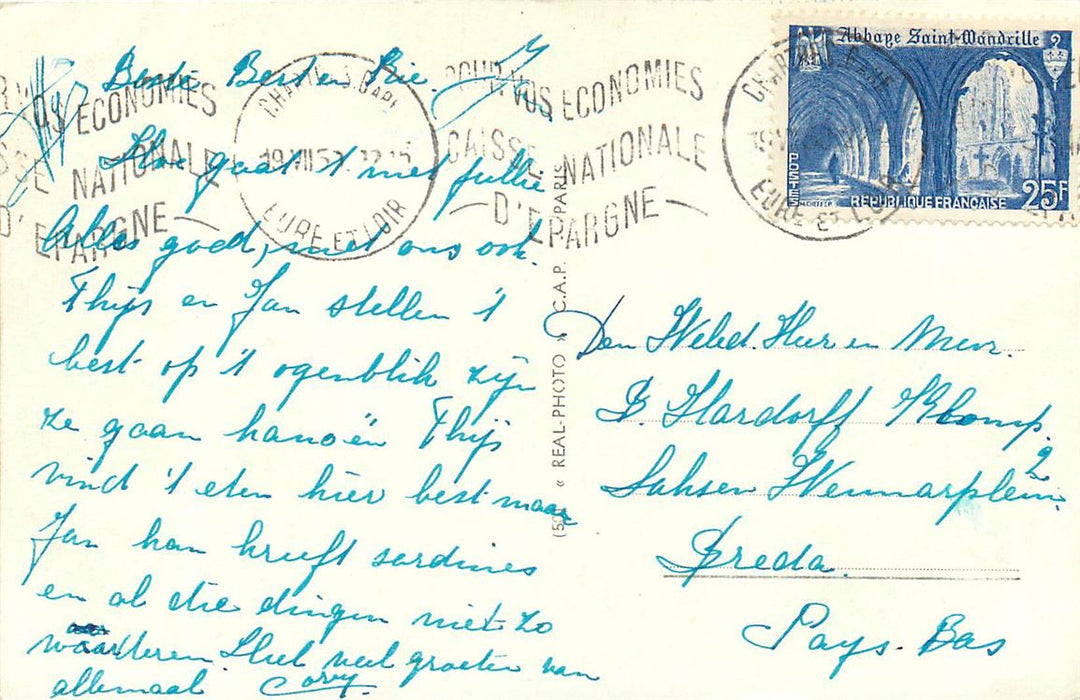 Beste Bert en Rie.
Hoe gaat 't met jullie
Alles goed, met ons ook.
Thijs en Jan stellen 't
best op 't ogenblik zijn
ze gaan kanoën Thijs
vind 't eten hier best maar
Jan kan kreeft sardines
en al die dingen niet zo
waarderen. Heel veel groeten van
allemaal Corry.
POUR VOS ECONOMIES
CAISSE NATIONALE
D'EPARGNE
CHARTRES GARE
EURE ET LOIR
POUR VOS ECONOMIES
CAISSE NATIONALE
D'EPARGNE
CHARTRES GARE
EURE ET LOIR
Abbaye Saint-Wandrille
POSTES
RÉPUBLIQUE FRANÇAISE
25F
« REAL-PHOTO » C.A.P. PARIS
Den Weled. Heer en Mevr.
B. Hardorff Klomp.
Saksen Weimarplein 2
Breda.
Pays-Bas